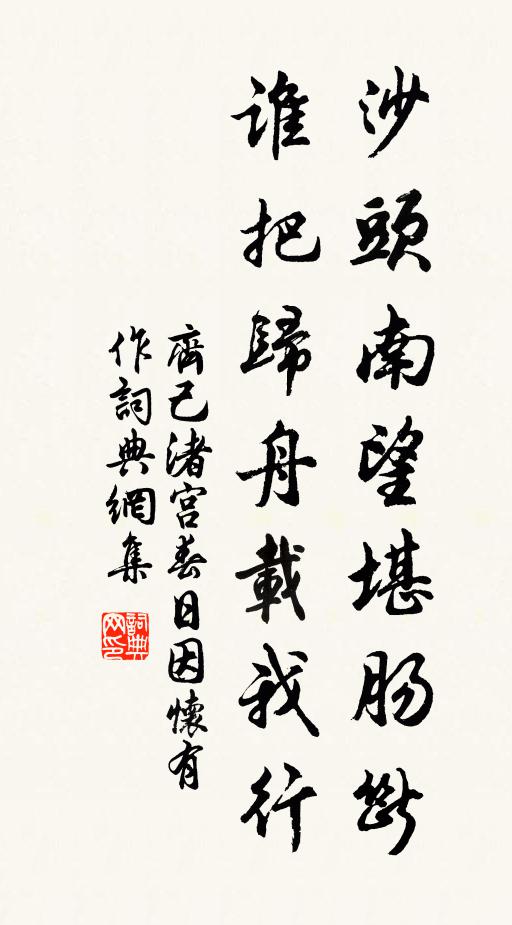 沙頭南望堪腸斷
誰把歸舟載我行
齊己渚宮春日因懷有
作詞典網集
詞典网印